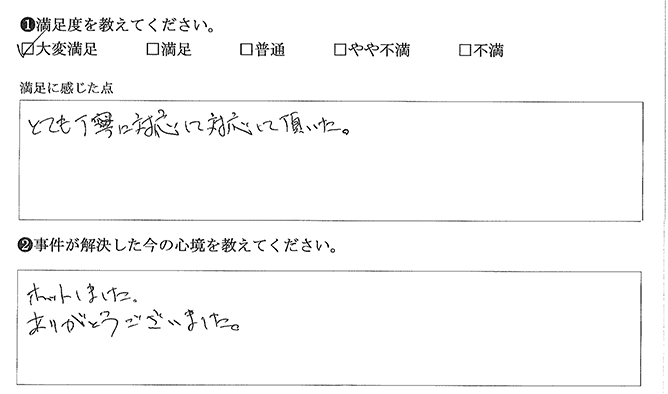 ❶満足度を教えてください。
☑大変満足 □満足 □普通 □やや不満 □不満
満足に感じた点
とても丁寧に対応して対応して頂いた。
❷事件が解決した今の心境を教えてください。
ホットしました。
ありがとうございました。